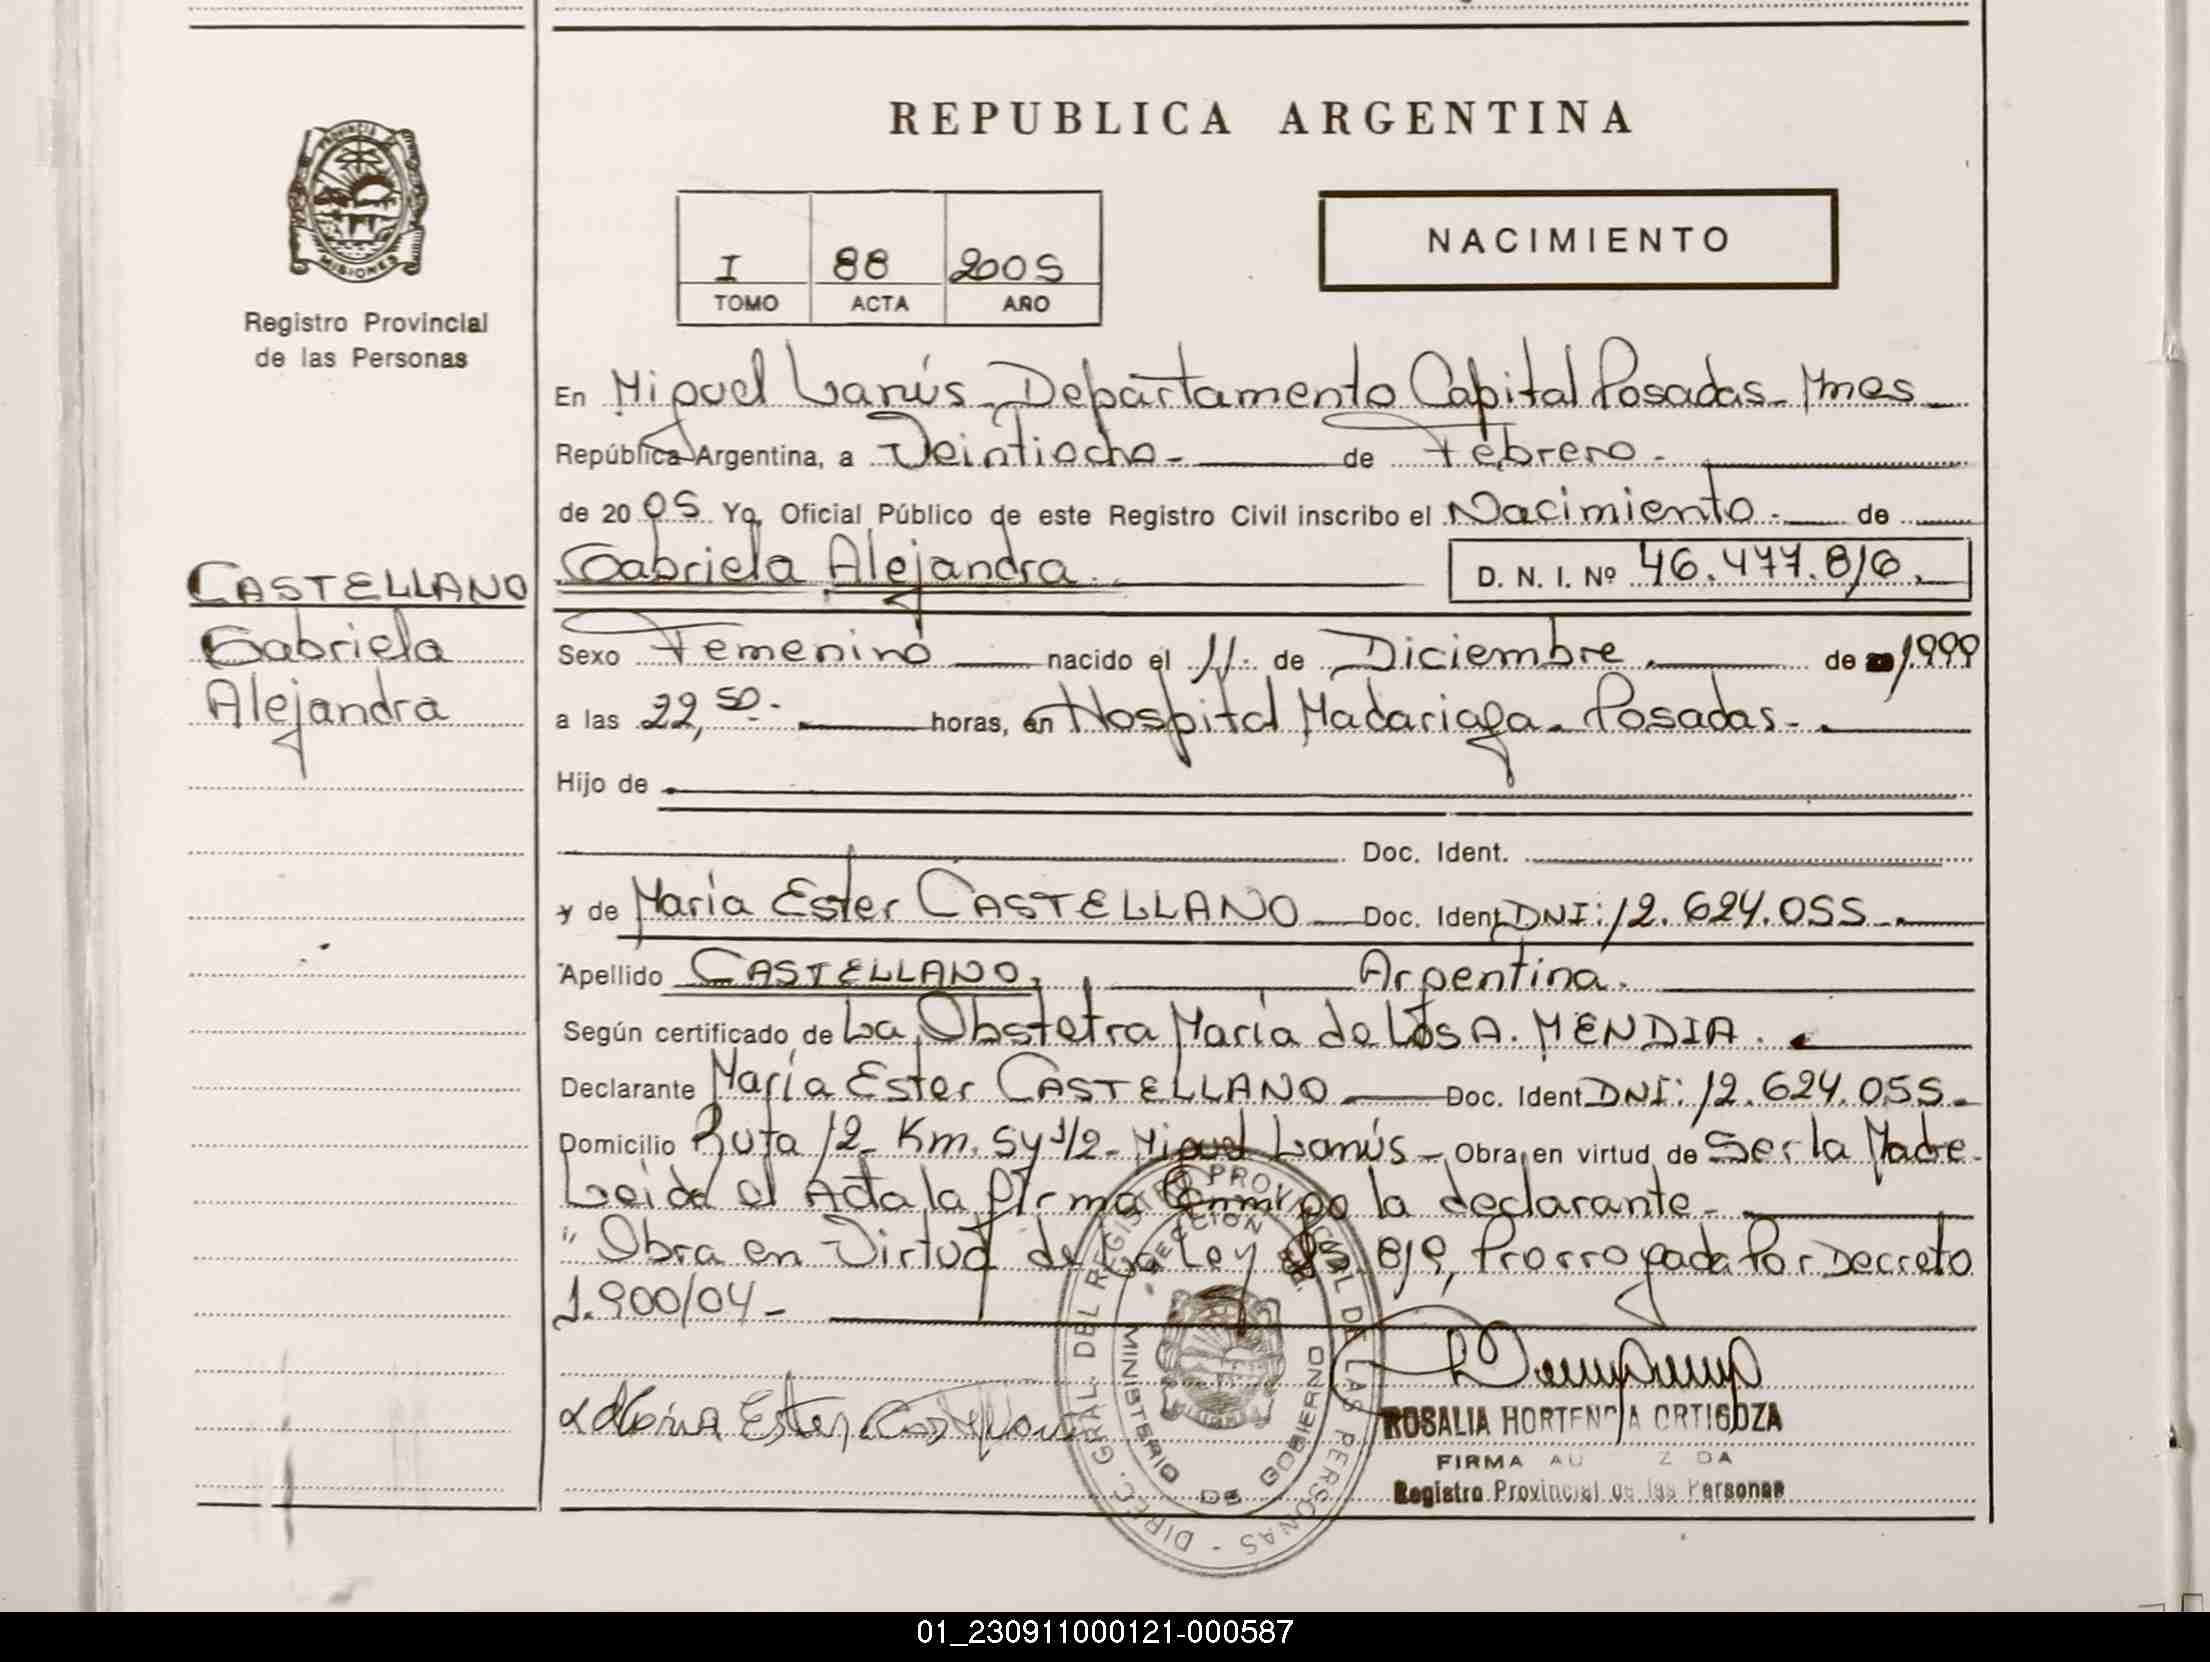 REPUBLICA ARGENTINA
PROVINCIA DE
MISIONES
Registro Provincial
de las Personas
I 88 2005
TOMO ACTA AÑO
NACIMIENTO
En Miguel Lanús - Departamento Capital Posadas - Mnes
República Argentina, a Veintiocho - de Febrero -
de 2005 Yo, Oficial Público de este Registro Civil inscribo el Nacimiento - de
CASTELLANO
Gabriela
Alejandra
Gabriela Alejandra. D. N. I. Nº 46.477.816.
Sexo Femenino nacido el 11 de Diciembre de 1999
a las 22,50 - horas, en Hospital Madariaga - Posadas -
Hijo de
Doc. Ident.
y de María Ester CASTELLANO Doc. Ident DNI: 12.624.055
Apellido CASTELLANO, Argentina.
Según certificado de La Obstetra María de Los A. MENDIA.
Declarante María Ester CASTELLANO Doc. Ident DNI: 12.624.055.
Domicilio Ruta 12 - Km. 5 y 1/2 - Miguel Lanús - Obra en virtud de Ser la Madre -
Leida el Acta la firma Conmigo la declarante -
" Obra en Virtud de La Ley 25.819, Prorrogada Por Decreto
1.900/04 -
María Ester Castellano
DIREC. GRAL. DEL REGISTRO PROVINCIAL DE LAS PERSONAS
MINISTERIO DE GOBIERNO
ROSALIA HORTENCIA ORTIGOZA
FIRMA AU Z DA
Registro Provincial de las Personas
01_230911000121-000587